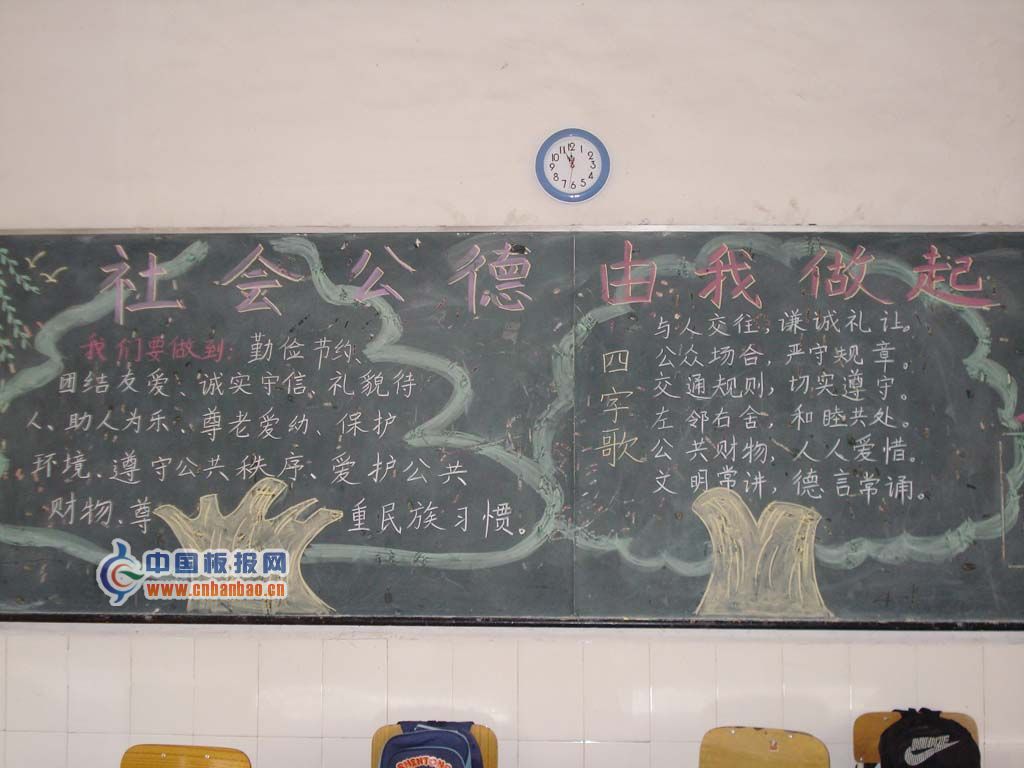 12
1
2
3
4
5
6
7
8
9
10
11
社会公德 由我做起
我们要做到：勤俭节约、
团结友爱、诚实守信、礼貌待
人、助人为乐、尊老爱幼、保护
环境、遵守公共秩序、爱护公共
财物、尊重民族习惯。
四字歌
与人交往，谦诚礼让。
公众场合，严守规章。
交通规则，切实遵守。
左邻右舍，和睦共处。
公共财物，人人爱惜。
文明常讲，德言常诵。
中国板报网
www.cnbanbao.cn
SHENTONG
NIKE